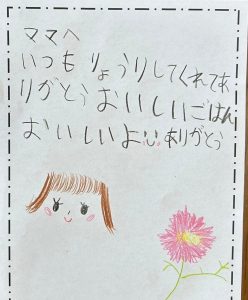 ママへ
いつもりょうりしてくれてあ
りがとうおいしいごはん
おいしいよありがとう